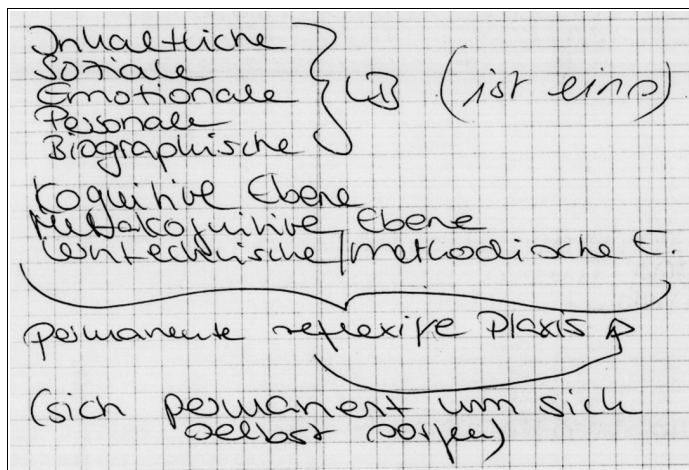 Inhaltliche
Soziale
Emotionale
Personale
Biographische
LB (ist eins)
Kognitive Ebene
Metakognitive Ebene
Lerntechnische/methodische E.
permanente reflexive Praxis
(sich permanent um sich
selbst sorgen)